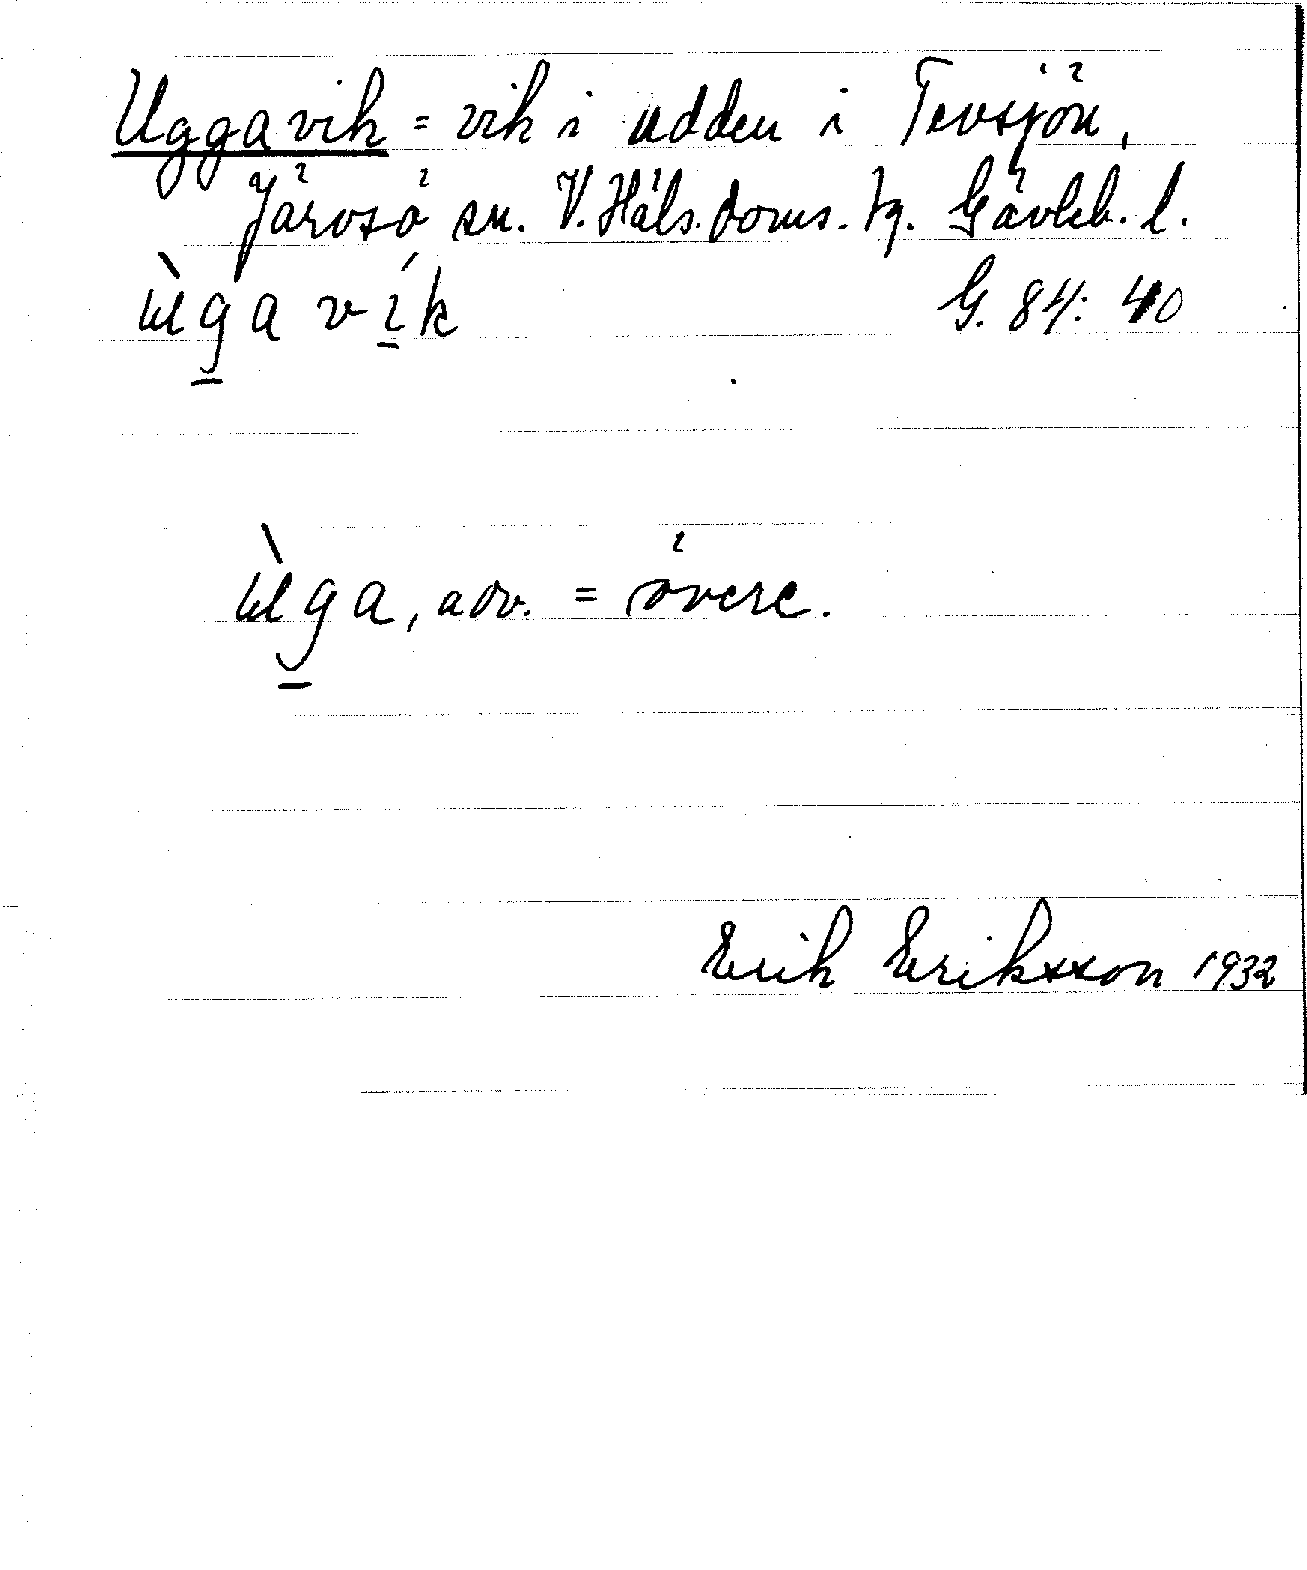 Uggavik = vik i udden i Tevsjön,
Järvsö sn. V. Häls. doms. tg. Gävleb. l.
ùgavík G. 84: 40
ùga, adv. = övere.
Erik Eriksson 1932